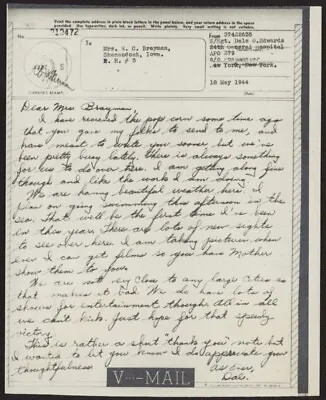 Print the complete address in plain block letters in the panel below, and your return address in the space
provided. Use typewriter, dark ink, or dark pencil. Faint or small writing is not suitable for photographing.
213472
To
Mrs. W. C. Brayman,
Shenandoah, Iowa.
R. R # 3
From
S/Sgt. Dale O. Edwards
24th General Hospital
APO 379
c/o Postmaster
New York, New York.
18 May 1944
(CENSOR'S STAMP)
Dear Mrs Brayman,
I have received the pop corn some time ago
that you gave my folks to send to me, and
have meant to write you sooner but we've
been pretty busy lately. There is always something
for us to do over here. I am getting along fine
though and like the work I am doing.
We are having beautiful weather here. I
plan on going swimming this afternoon in the
Sea. That will be the first time I've been
in this year. There are lots of new sights
to see over here. I am taking pictures when
ever I can get films so you have Mother
show them to you.
We are not very close to any large cities so
that makes it bad. We do have lots of
shows for entertainment though. All in all
we can't kick. Just hope for that speedy
victory.
This is rather a short "thank you" note but
I wanted to let you know I do appreciate your
thoughtfulness
As Ever,
Dale
V···-MAIL